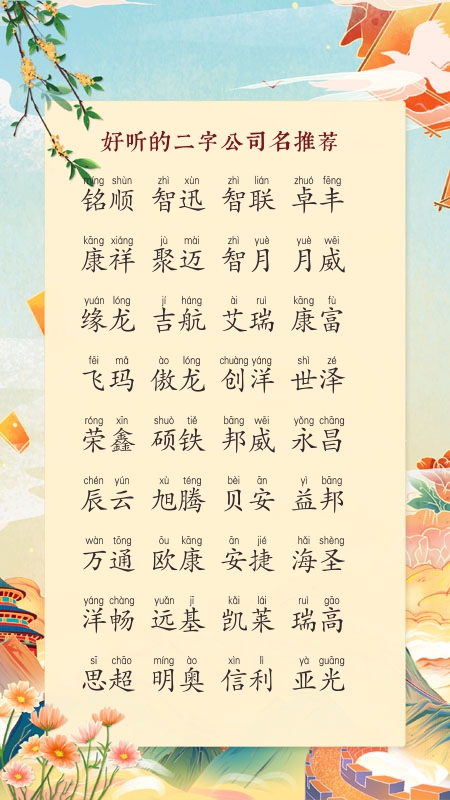 好听的二字公司名推荐
míng shùn zhì xùn zhì lián zhuó fēng
铭顺 智迅 智联 卓丰
kāng xiáng jù mài zhì yuè yuè wēi
康祥 聚迈 智月 月威
yuán lóng jí háng ài ruì kāng fù
缘龙 吉航 艾瑞 康富
fēi mǎ ào lóng chuàng yáng shì zé
飞玛 傲龙 创洋 世泽
róng xīn shuò tiě bāng wēi yǒng chāng
荣鑫 硕铁 邦威 永昌
chén yún xù téng bèi ān yì bāng
辰云 旭腾 贝安 益邦
wàn tōng ōu kāng ān jié hǎi shèng
万通 欧康 安捷 海圣
yáng chàng yuǎn jī kǎi lái ruì gāo
洋畅 远基 凯莱 瑞高
sī chāo míng ào xìn lì yà guāng
思超 明奥 信利 亚光